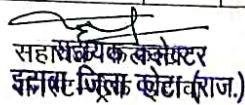 सहायक कलेक्टर
इटावा जिला कोटा (राज.)